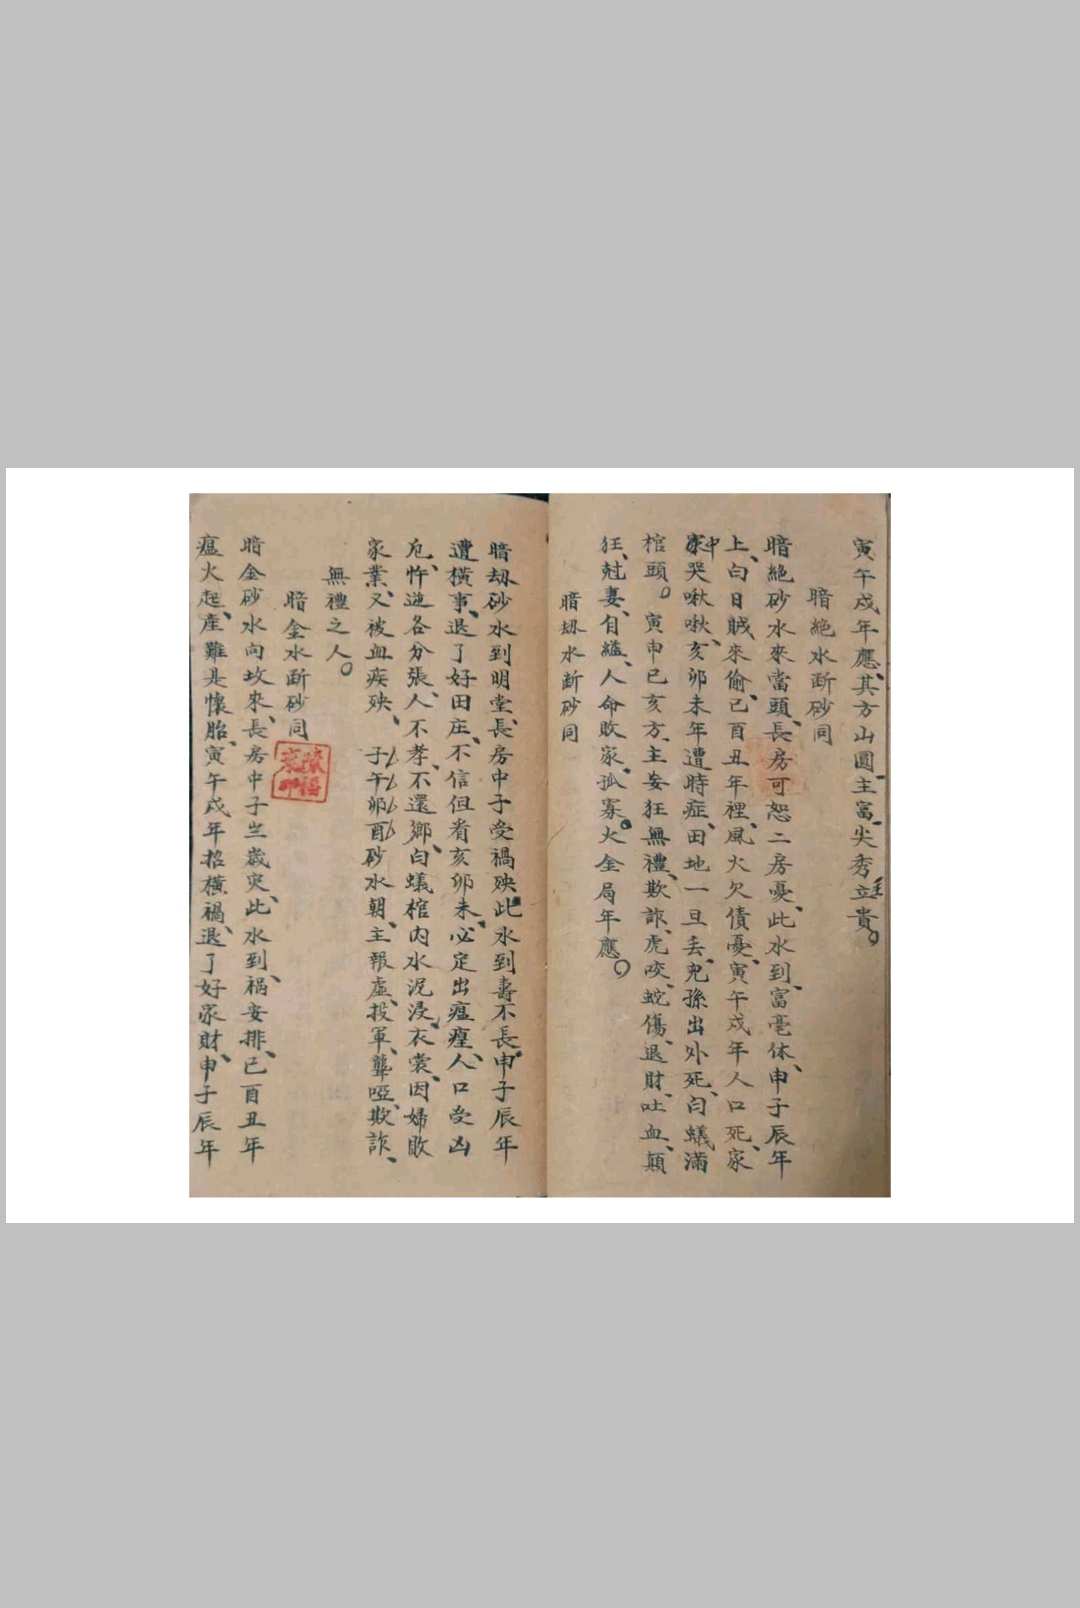 寅午戍年應、其方山圓、主富、尖秀主立貴。
暗絕水斷砂同
暗絕砂水來當頭、長房可恕二房憂、此水到、富毫休、申子辰年
上、白日賊來偷、已酉丑年裡、風火欠債憂、寅午戍年人口死、家
中哭啾啾、亥卯未年遭時症、田地一旦丢、兒孫出外死、白蟻滿
棺頭。寅申巳亥方、主妄狂無禮、欺詐、虎咬、蛇傷、退財、吐血、顛
狂、尅妻、自縊、人命敗家、孤寡、火金局年應。
暗刼水斷砂同
暗刼砂水到明堂、長房中子受禍殃、此水到壽不長、申子辰年
遭橫事、退了好田庄、不信但看亥卯未、必定出瘟瘟、人口受凶
危、忤逆各分張、人不孝、不還鄉、白蟻棺内水泥浸、衣裳、因婦敗
家業、又被血疾殃、子午卯酉砂水朝、主報虛、投軍、聾啞、欺詐、
無禮之人。
暗金水斷砂同
暗金砂水向坟來、長房中子亗歲灾、此水到、禍安排、已酉丑年
瘟火起、產難是懷胎、寅午戍年招橫禍、退了好家財、申子辰年